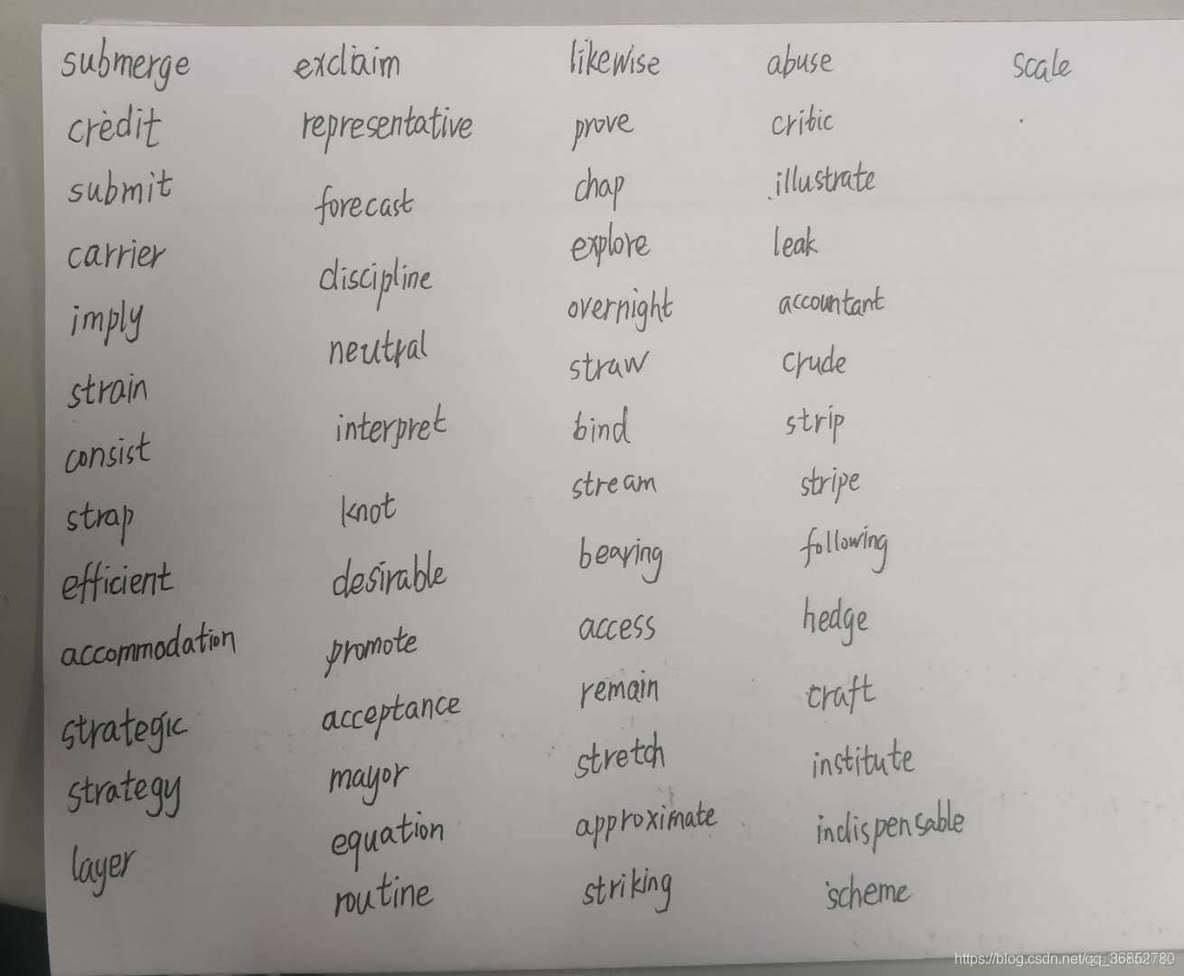 submerge
credit
submit
carrier
imply
strain
consist
strap
efficient
accommodation
strategic
strategy
layer
exclaim
representative
forecast
discipline
neutral
interpret
knot
desirable
promote
acceptance
mayor
equation
routine
likewise
prove
chap
explore
overnight
straw
bind
stream
bearing
access
remain
stretch
approximate
striking
abuse
critic
illustrate
leak
accountant
crude
strip
stripe
following
hedge
craft
institute
indispensable
scheme
scale
https://blog.csdn.net/qq_36852780